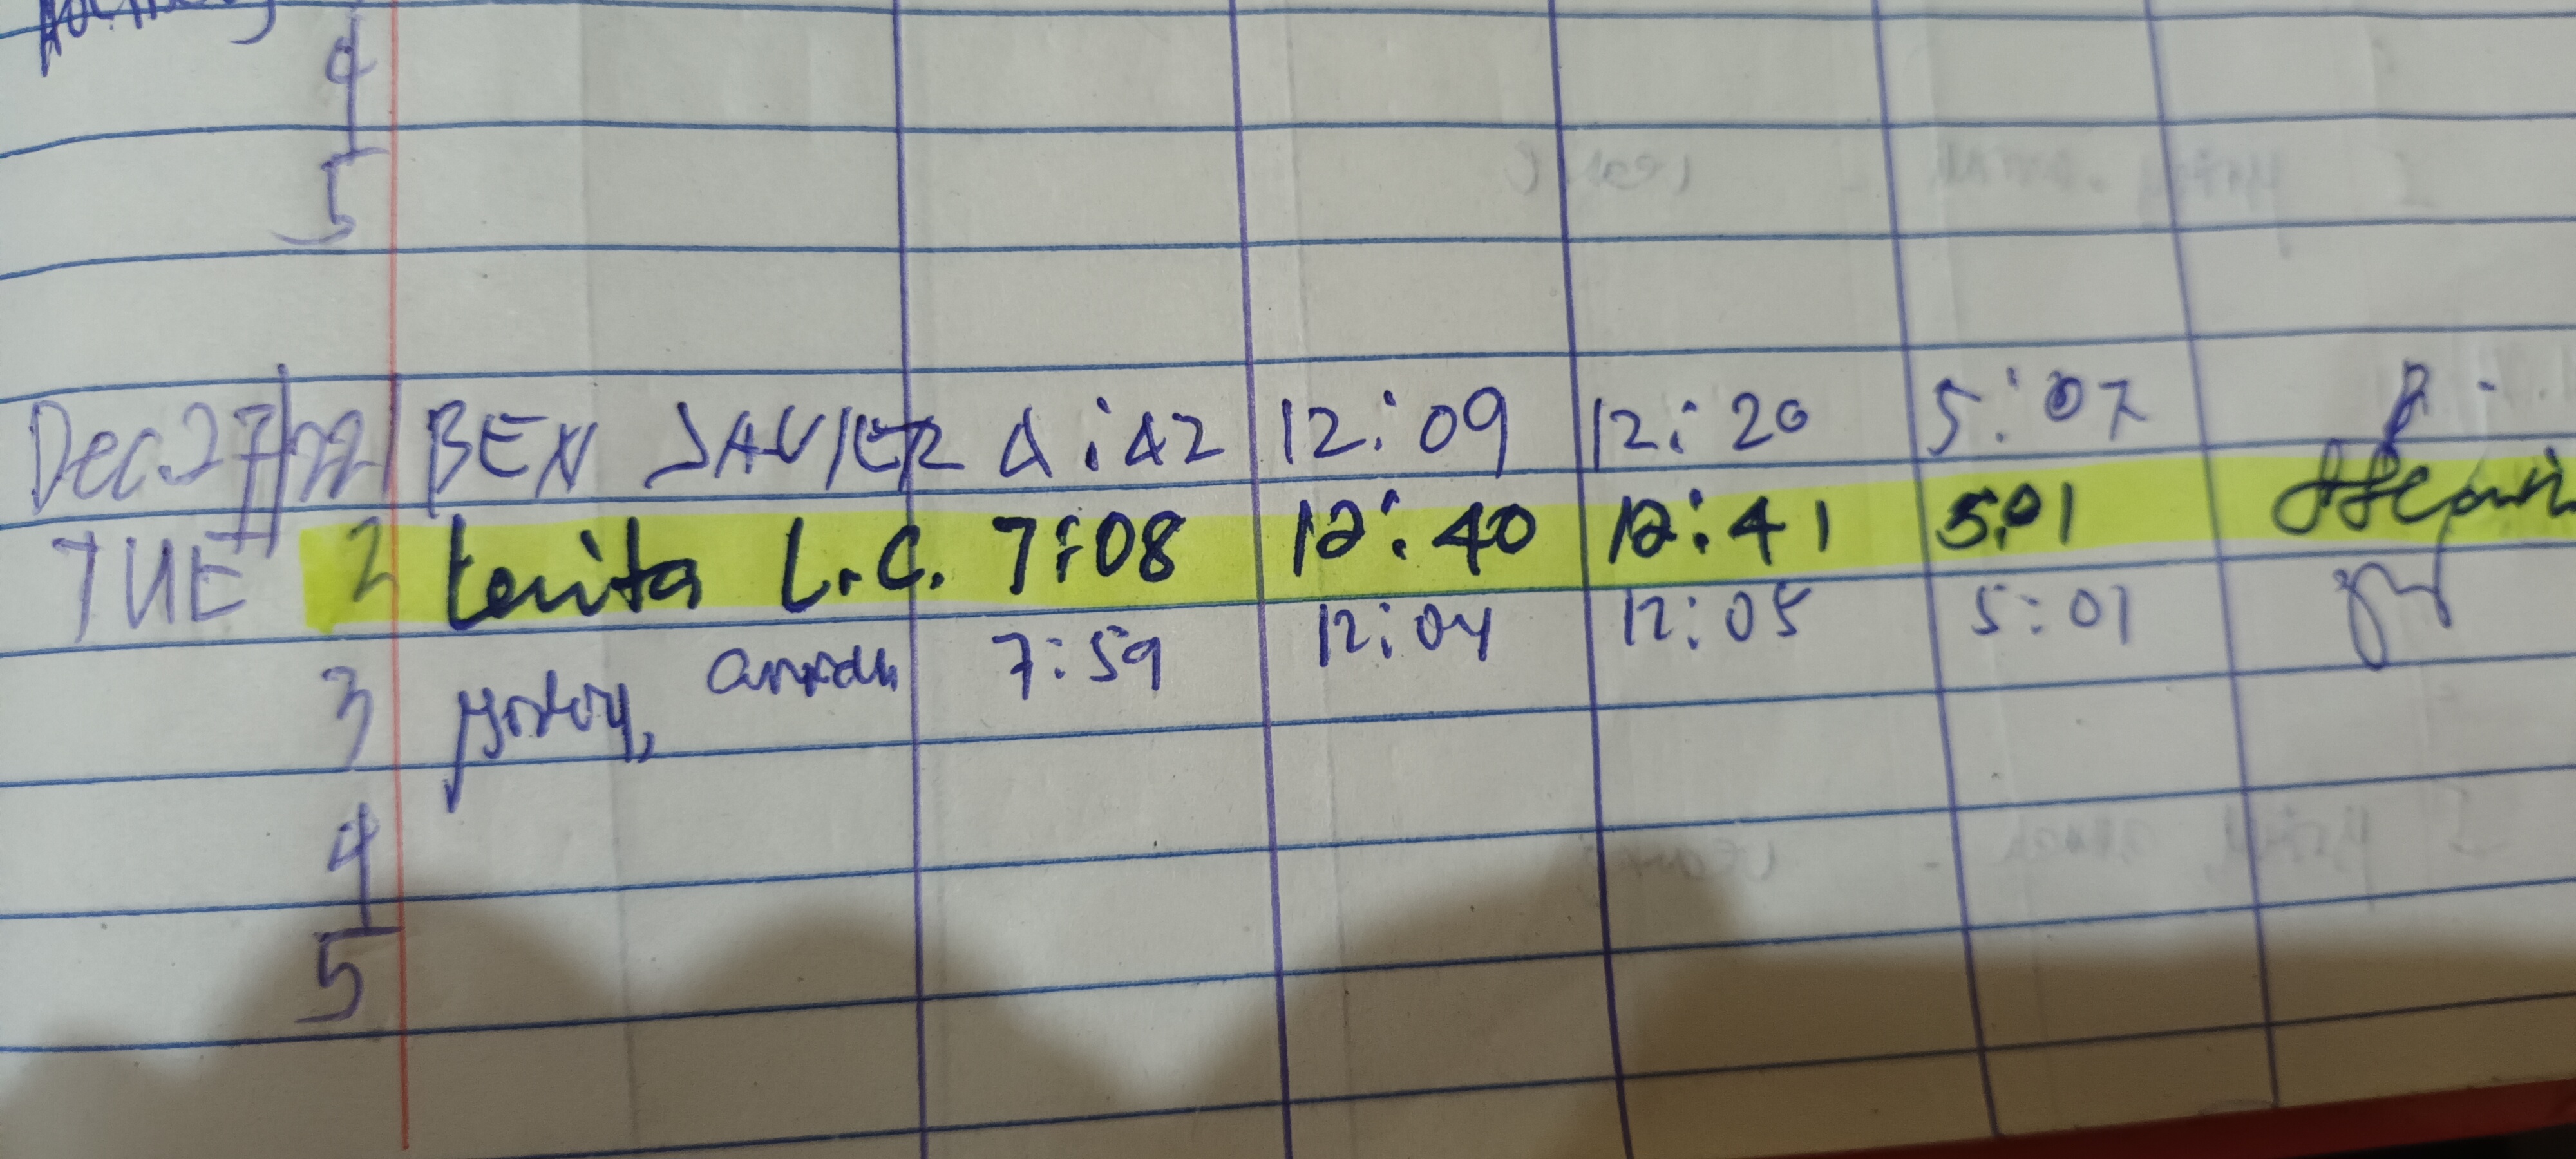 4
5
Dec. 27/22 1 BEN JAVIER 4:42 12:09 12:20 5:07
TUE 2 tenita L.C. 7:08 12:40 12:41 5:01
3 7:59 12:04 12:05 5:01
4
5